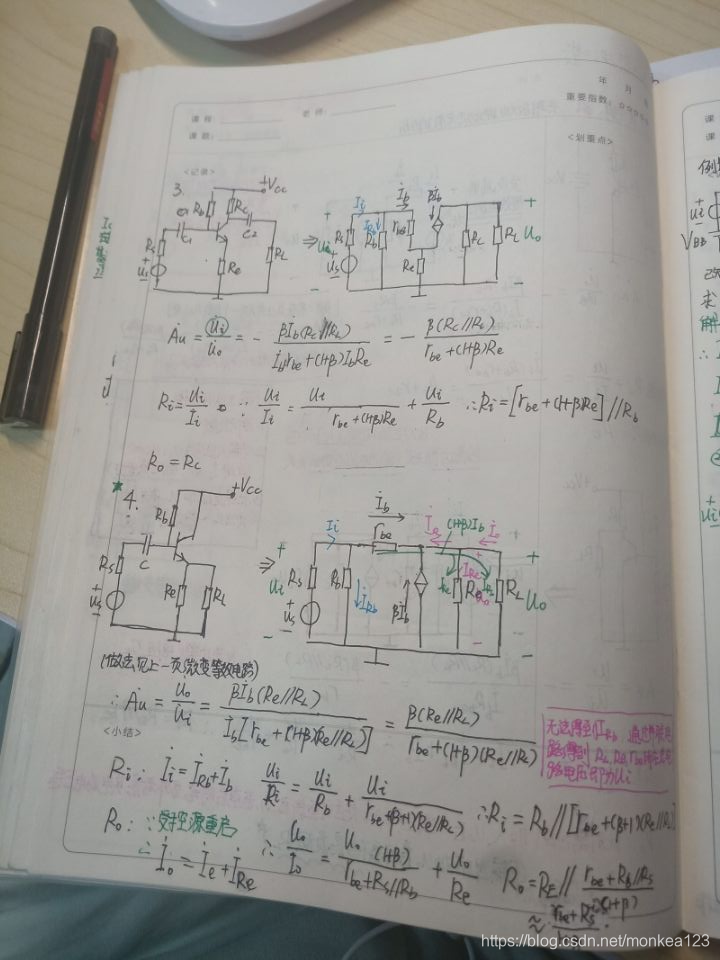 年 月
重要指数: ☆☆☆
课程:
老师:
课题:
<划重点>
<记录>
3.
+Vcc
Rb
Rc
C1
C2
Rs
Re
RL
us
⇒
Ii
İb
βİb
Rs
Rb
rbe
Re
Rc
RL
+
Uo
-
Ȧu = U̇i/U̇o = - βİb(Rc//RL)/(İbrbe+(1+β)İbRe) = - β(Rc//RL)/(rbe+(1+β)Re)
Ri = Ui/Ii ∵ Ui/Ii = Ui/(rbe+(1+β)Re) + Ui/Rb ∴ Ri = [rbe+(1+β)Re]//Rb
Ro = Rc
* 4.
+Vcc
Rb
Rs
C
us
Re
RL
⇒
+
Ui
-
Ii
İb
rbe
İe
(1+β)İb
İo
Rs
Rb
İRb
βİb
IRe
RL
+
Uo
-
(做法见上一页微变等效电路)
∴ Ȧu = U̇o/U̇i = βİb(Re//RL)/(İb[rbe+(1+β)(Re//RL)]) = β(Re//RL)/(rbe+(1+β)(Re//RL))
<小结>
Ri: İi = İRb+İb Ui/Ri = Ui/Rb + Ui/(rbe+(β+1)(Re//RL)) ∴ Ri = Rb//[rbe+(β+1)(Re//RL)]
Ro: ∵ 受控源
∴ İo = İe+İRe ∴ Uo/Io = Uo(1+β)/(rbe+Rs//Rb) + Uo/Re Ro = RE// (rbe+RB//Rs)/(1+β)
≈
https://blog.csdn.net/monkea123